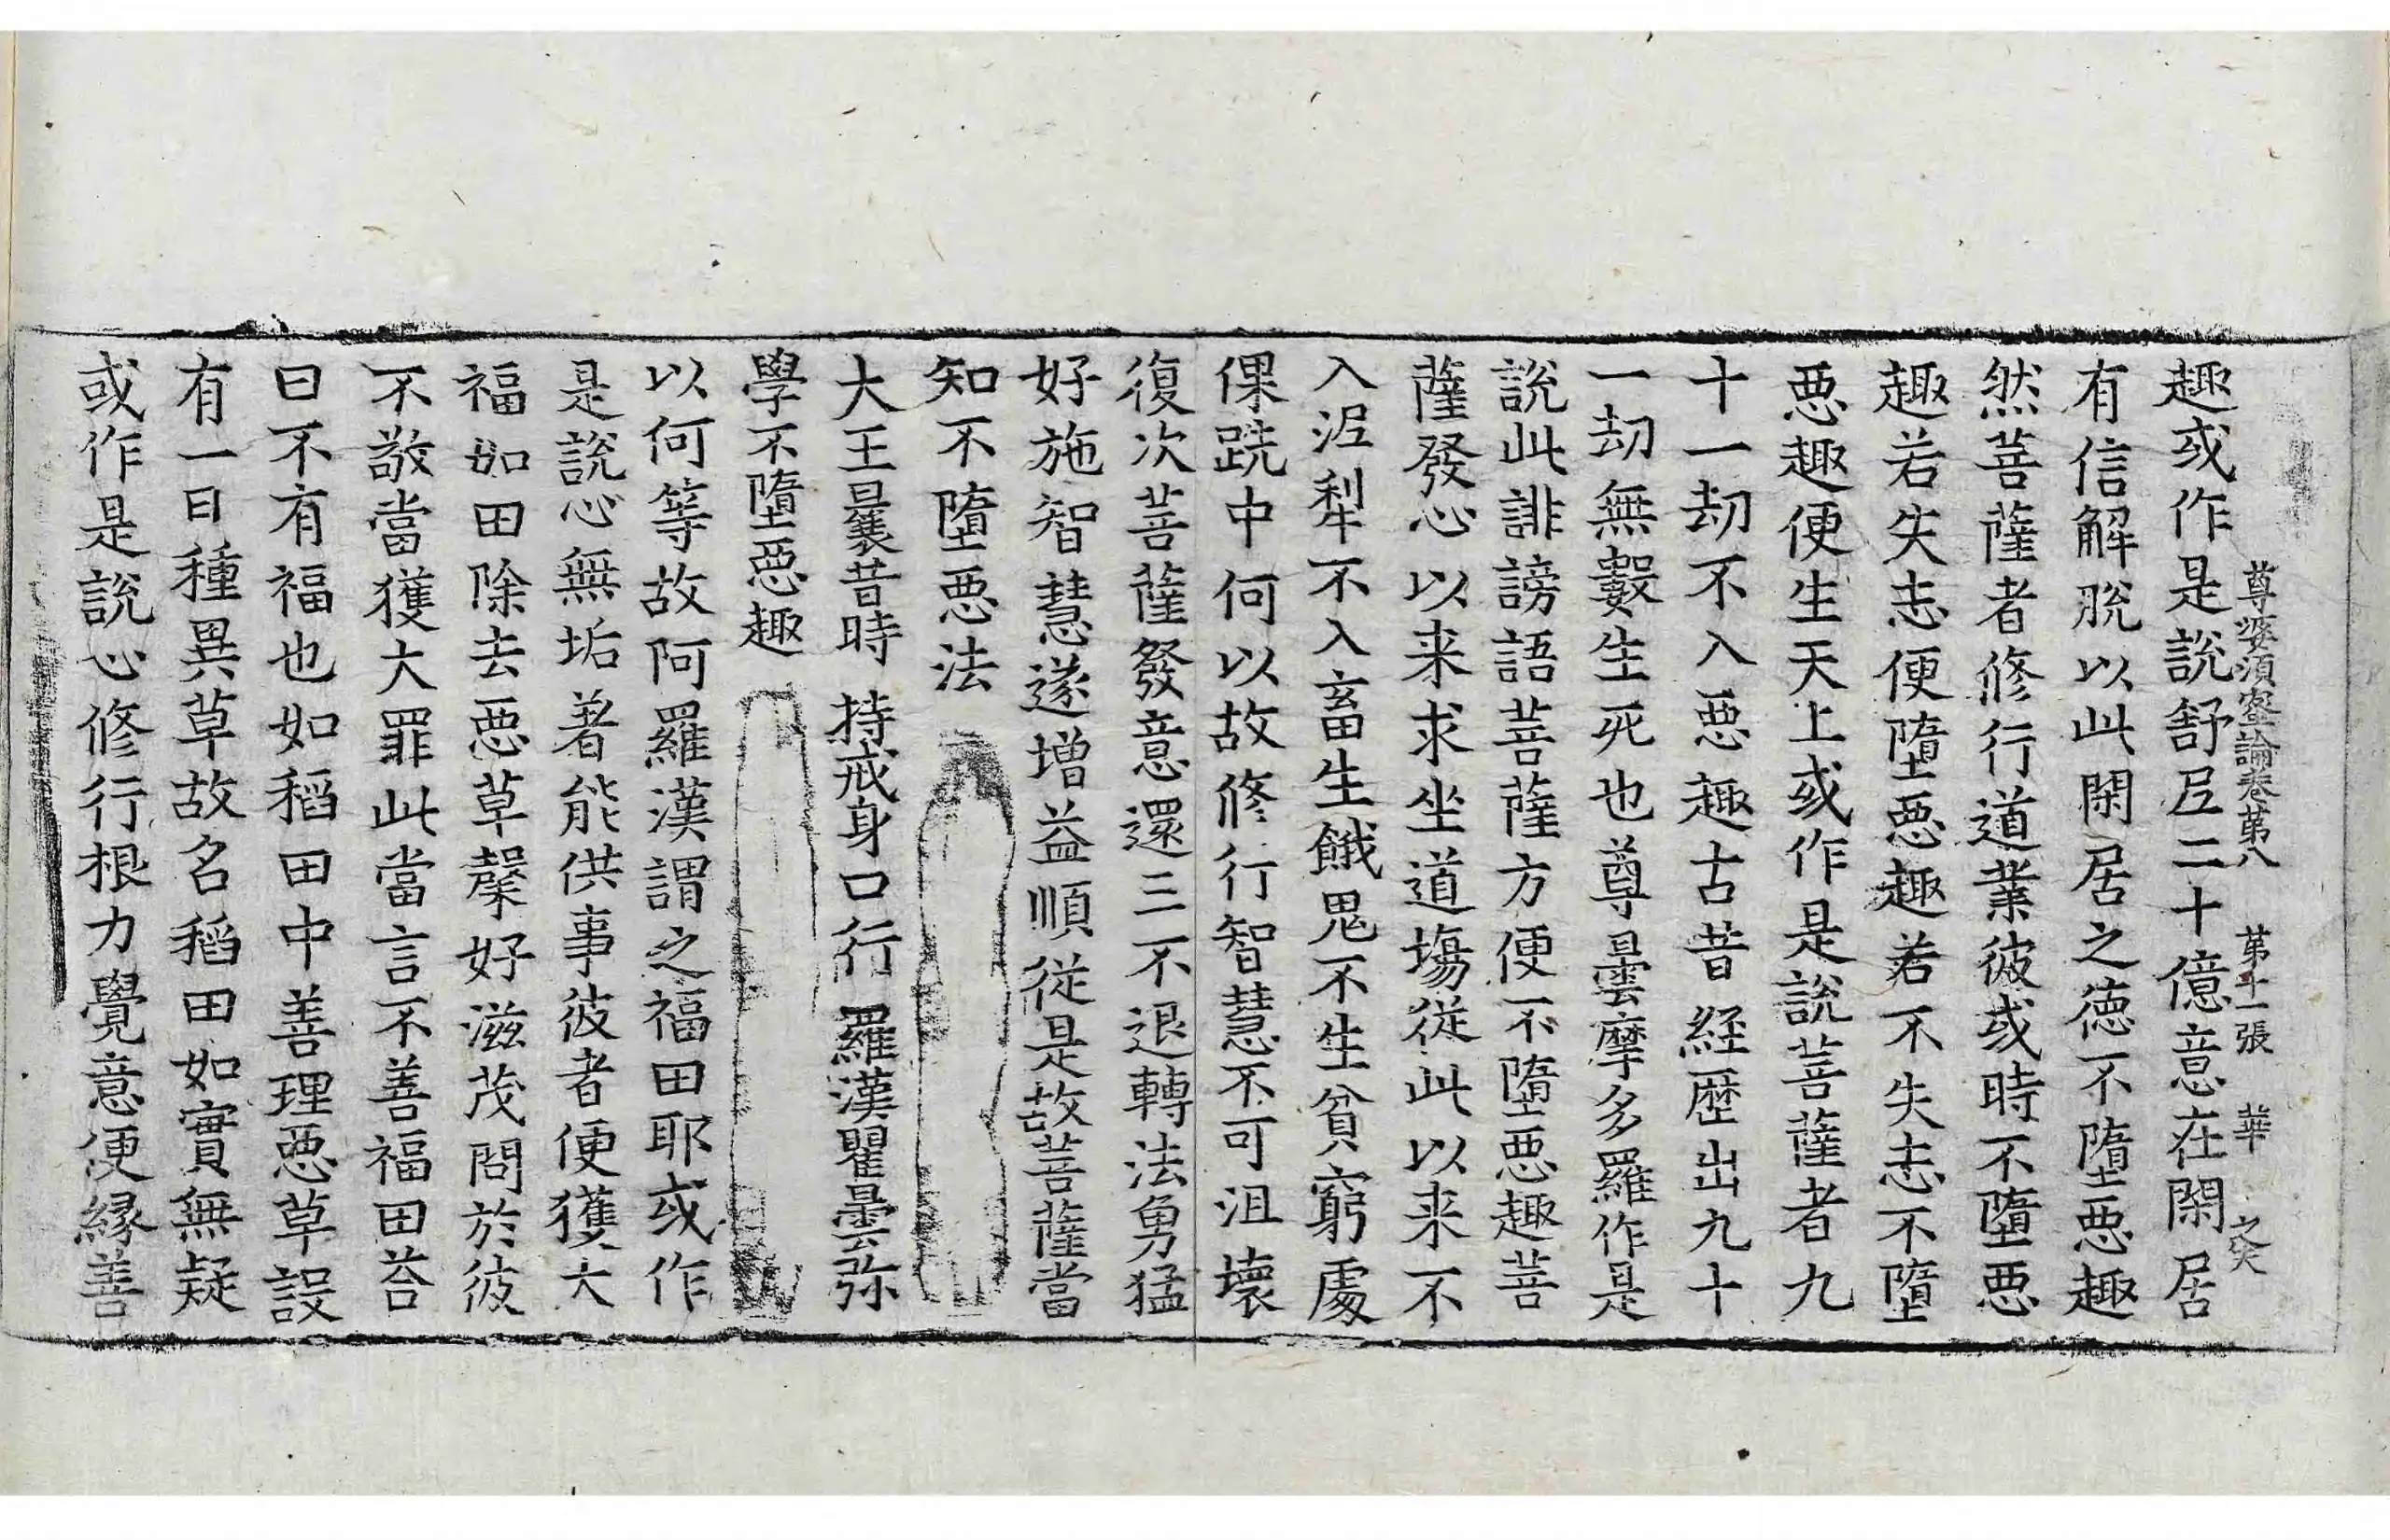 尊婆須蜜論卷第八 第十一張 華 之矣
趣或作是說舒𡰱二十億意在閑居
有信解脫以此閑居之德不墮惡趣
然菩薩者修行道業彼或時不墮惡
趣若失志便墮惡趣若不失志不墮
惡趣便生天上或作是說菩薩者九
十一劫不入惡趣古昔經歷出九十
一劫無數生死也尊曇摩多羅作是
說此誹謗語菩薩方便不墮惡趣菩
薩發心以来求坐道場從此以来不
入泥犁不入畜生餓鬼不生貧窮處
倮跣中何以故修行智慧不可沮壞
復次菩薩發意還三不退轉法勇猛
好施智慧遂增益順從是故菩薩當
知不墮惡法
大王曩昔時 持戒身口行 羅漢瞿曇弥
學不墮惡趣
以何等故阿羅漢謂之福田耶或作
是說心無垢著能供事彼者便獲大
福如田除去惡草糵好滋茂問於彼
不敬當獲大罪此當言不善福田荅
曰不有福也如稻田中善理惡草設
有一日種異草故名稻田如實無疑
或作是說心修行根力覺意便緣善